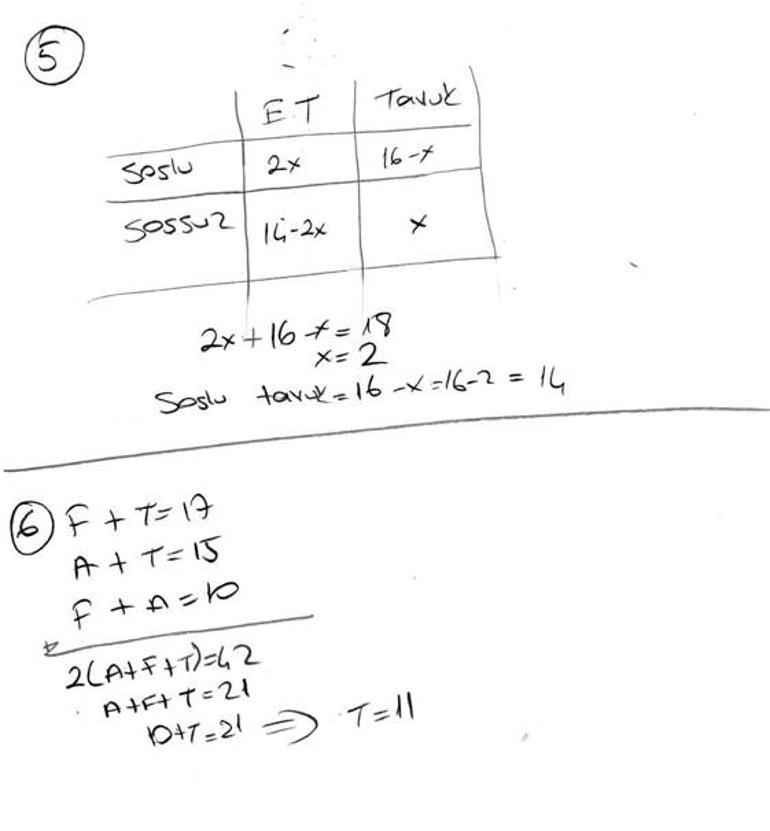 5
ET Tavuk
Soslu 2x 16-x
Sossuz 14-2x x
2x+16-x=18
x=2
Soslu tavuk=16-x=16-2=14
6 F+T=17
A+T=15
F+A=10
+
2(A+F+T)=42
A+F+T=21
10+T=21 ⇒ T=11